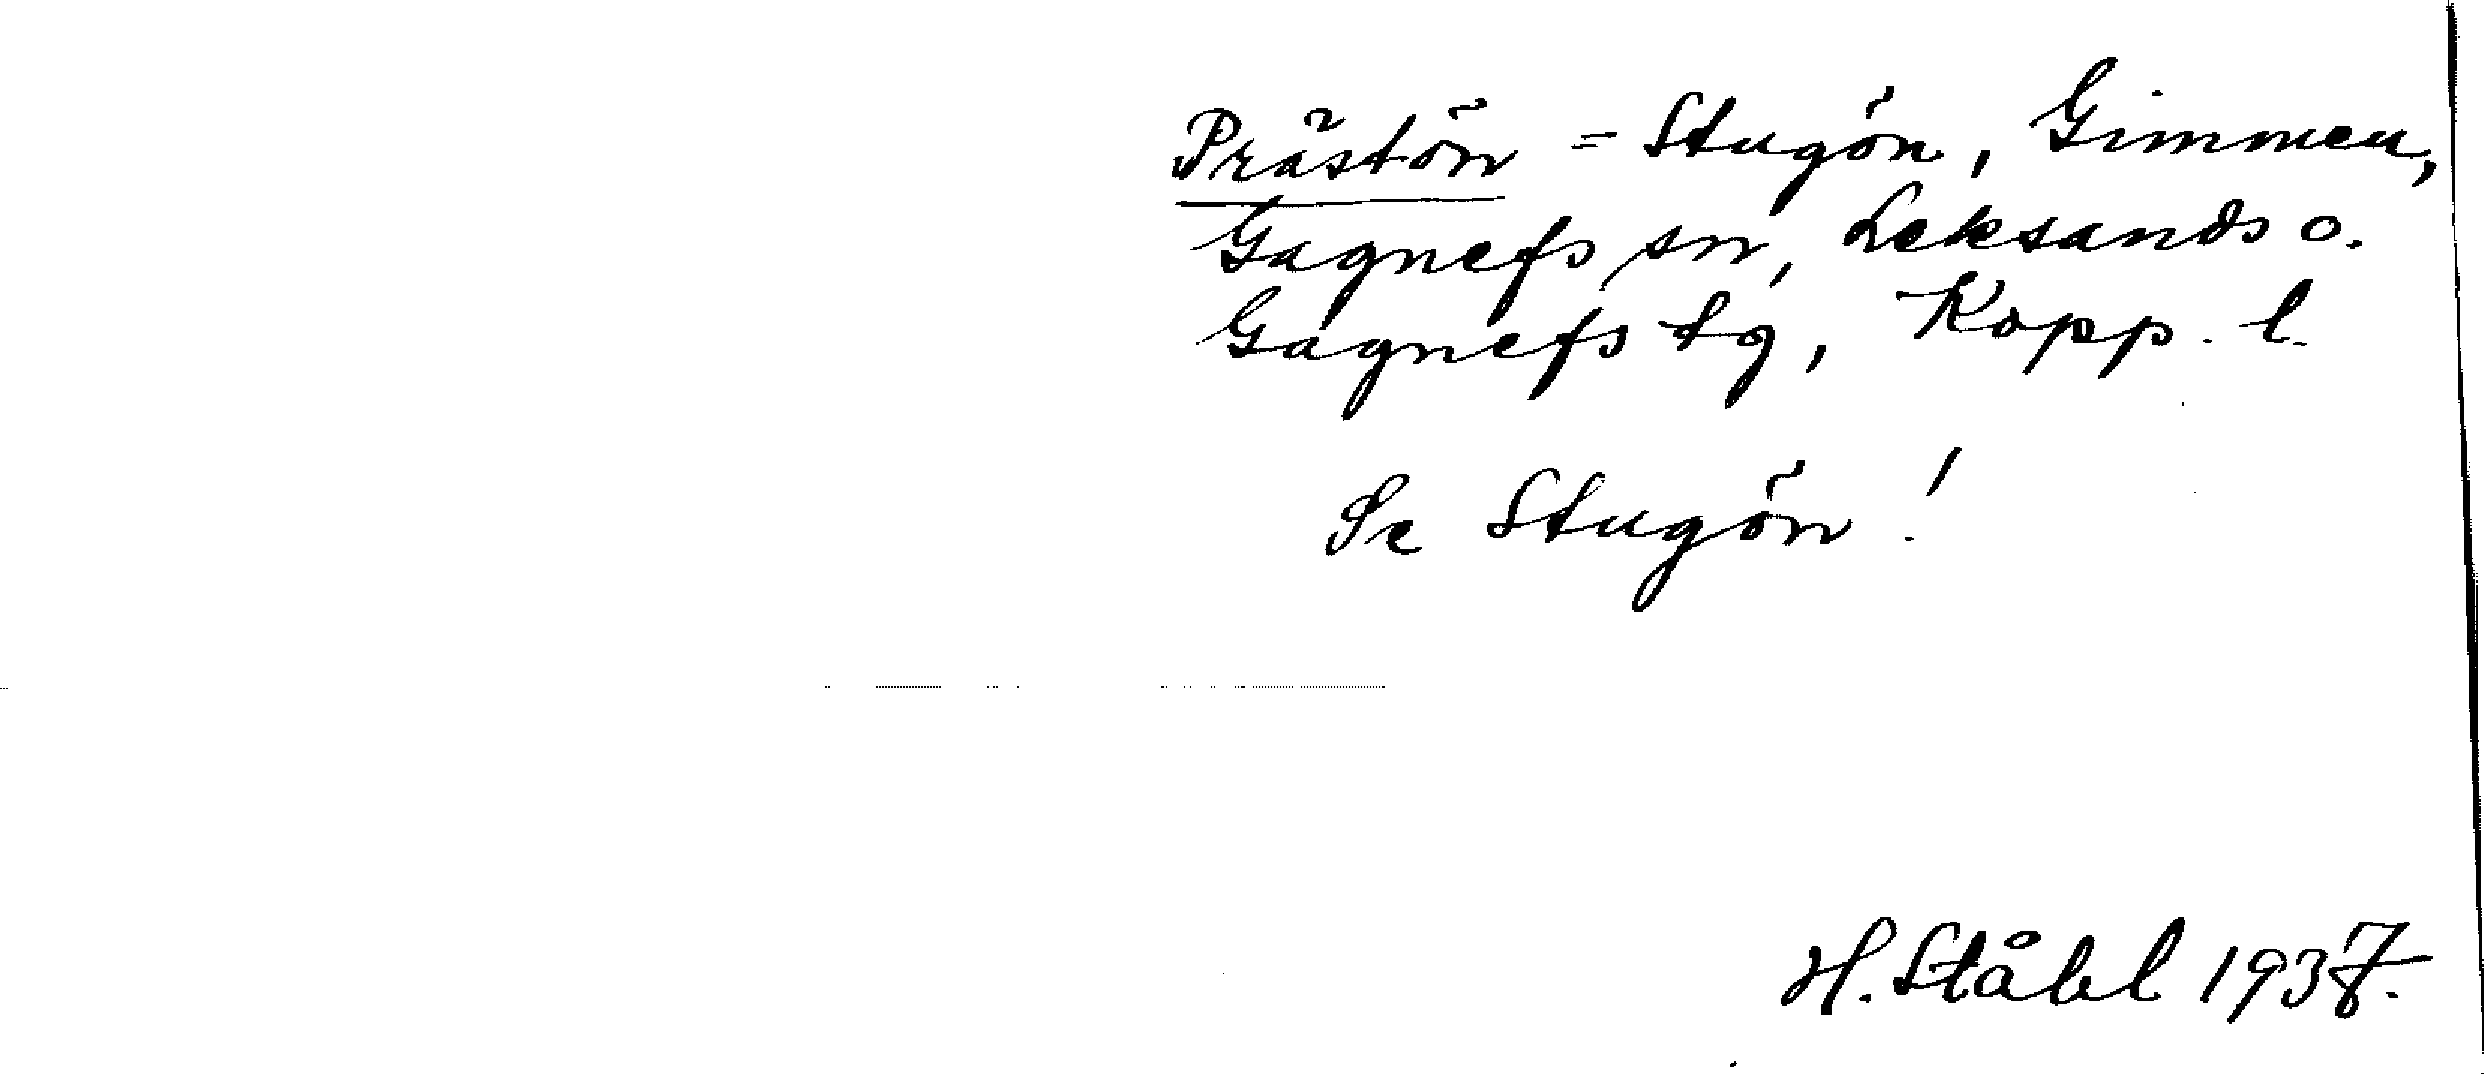 Prästön = Stugön, Gimmen,
Gagnefs sn, Leksands o.
Gagnefs tg, Kopp. l.
Se Stugön!
H. Ståhl 1937.